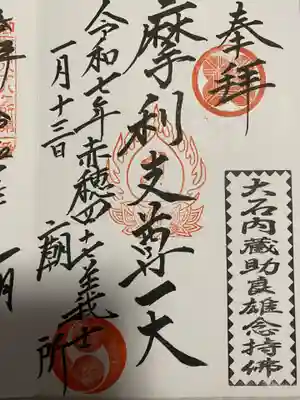 奉拝
大石内蔵助良雄念持佛
摩利支尊天
赤穂四十七義士廟所
令和七年
一月十三日